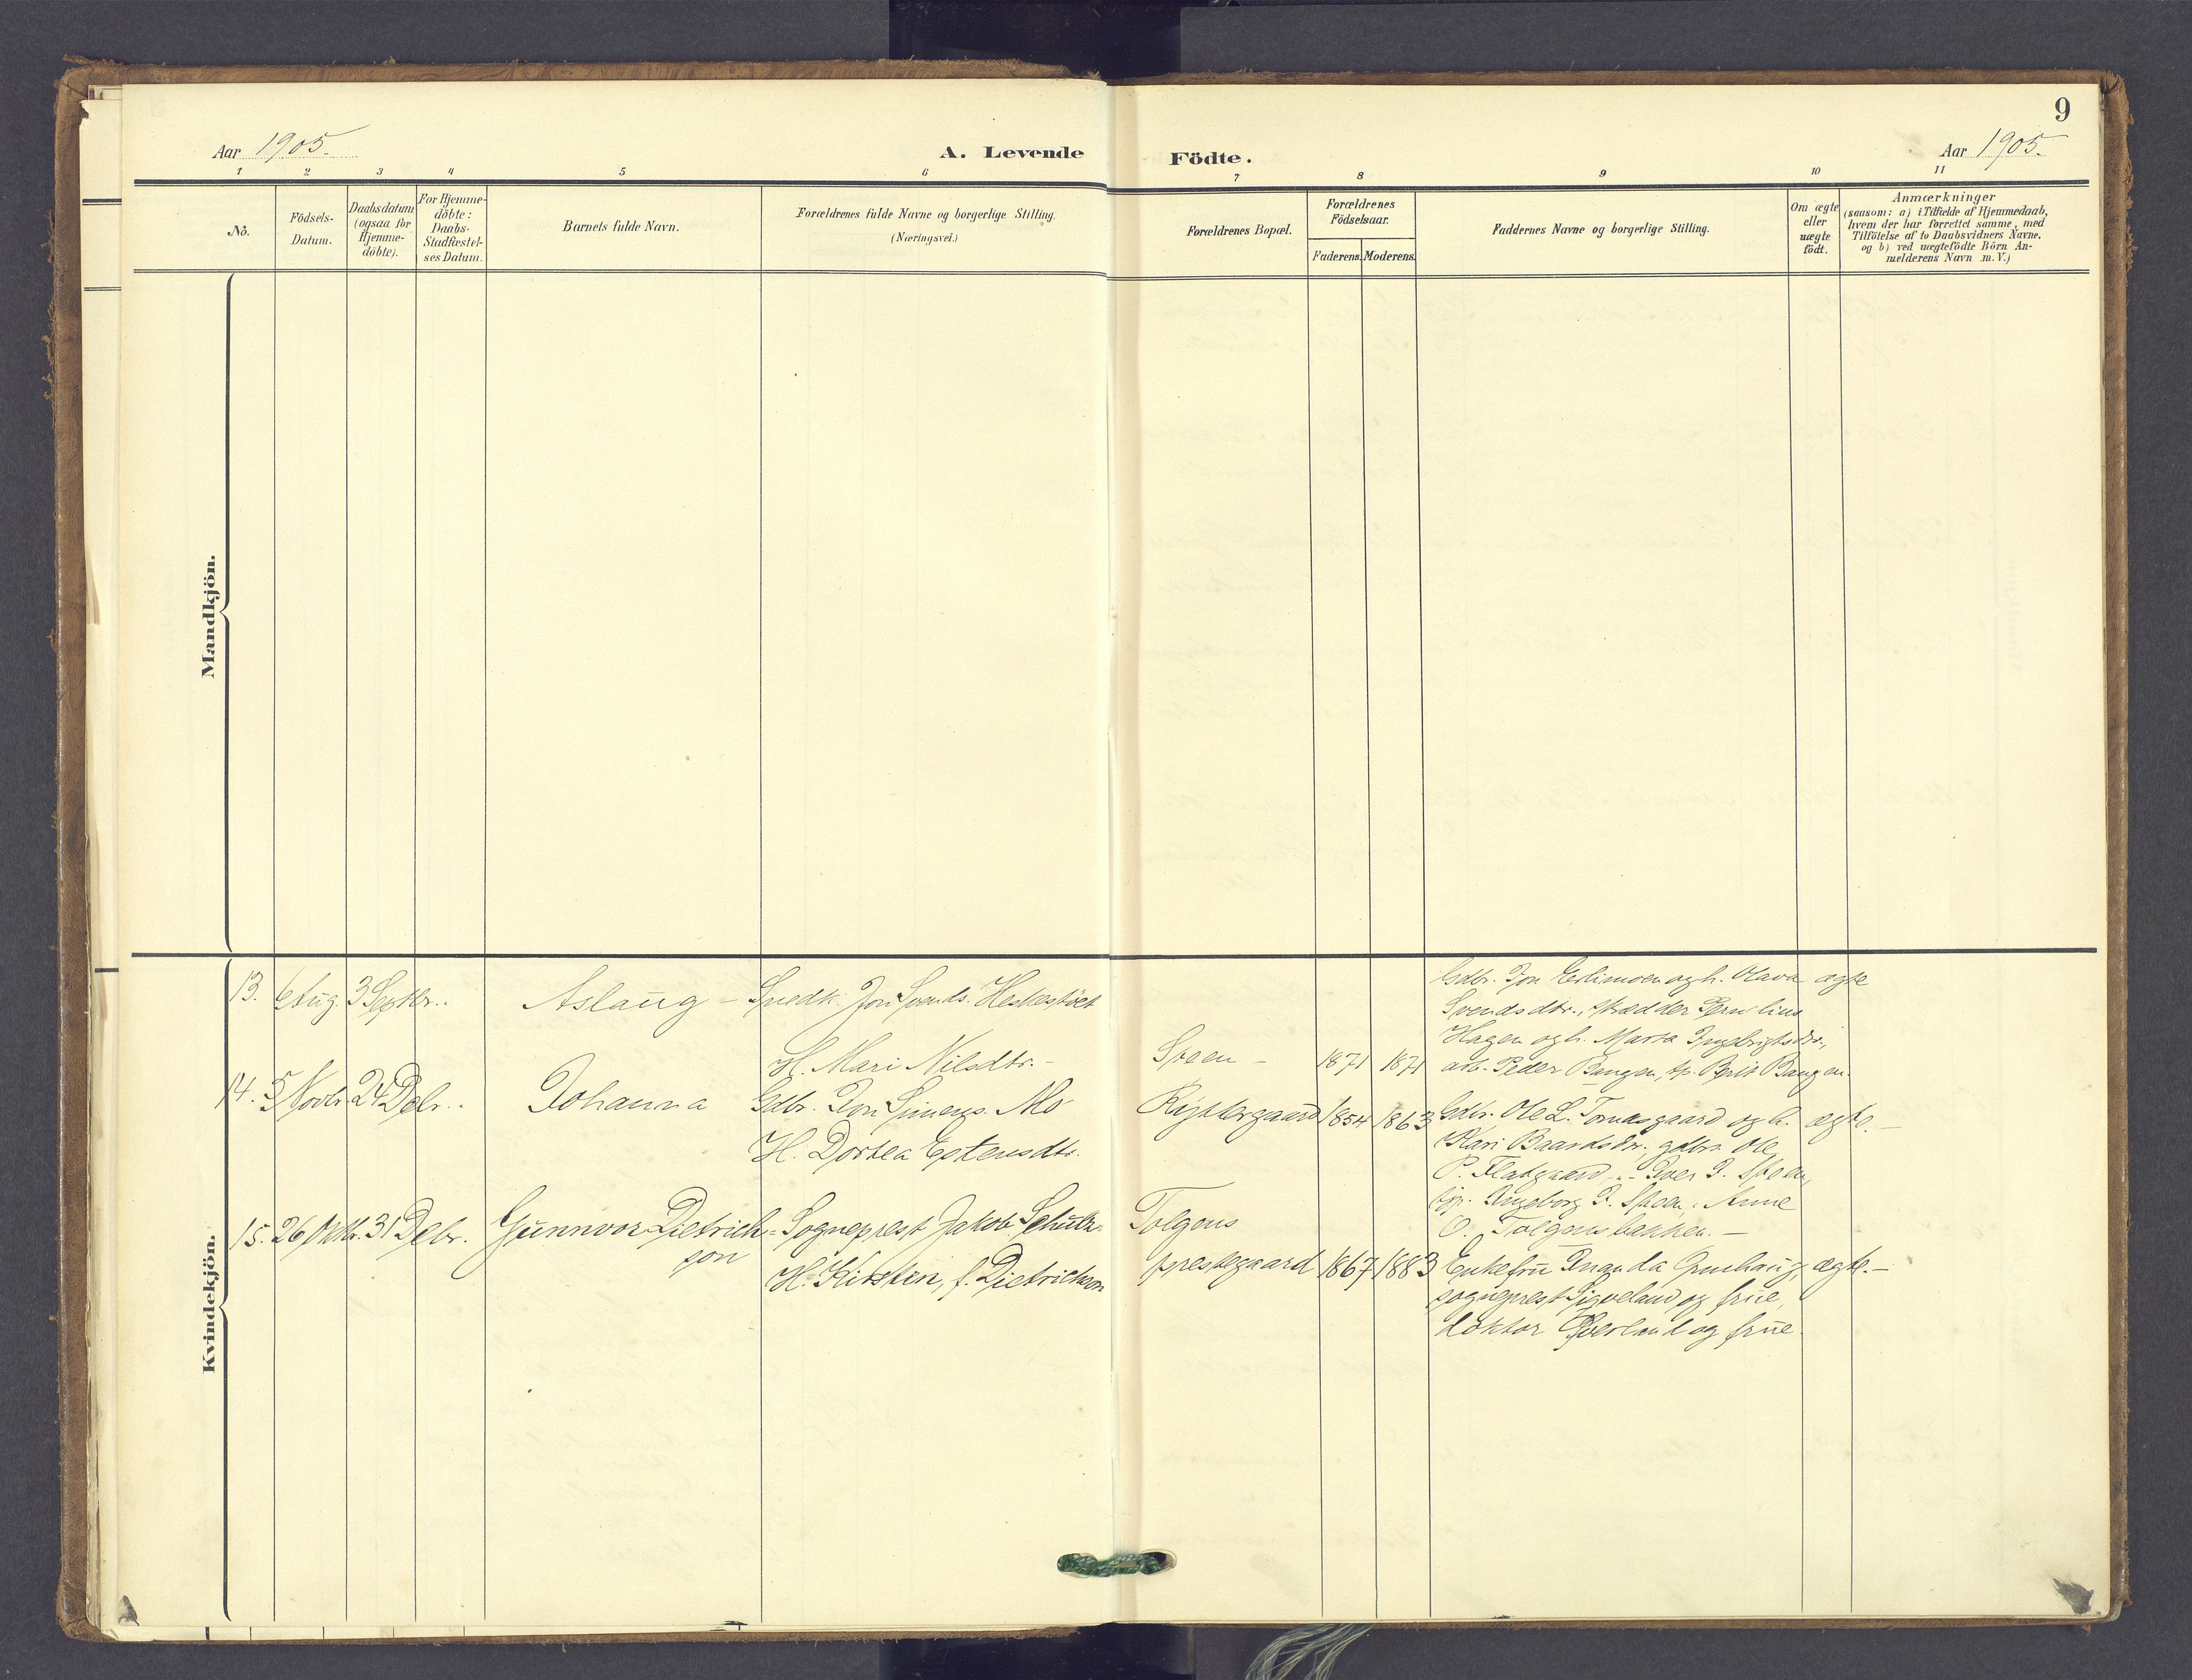 9
Aar 1905.
A. Levende Födte.
Aar 1905.
1 2 3 4 5 6 7 8 9 10 11
No.
Födsels-
Datum.
Daabsdatum
(ogsaa for
Hjemme-
döbte).
For Hjemme-
döbte:
Daabs-
Stadfæstel-
ses Datum.
Barnets fulde Navn.
Forældrenes fulde Navne og borgerlige Stilling.
(Næringsvei.)
Forældrenes Bopæl.
Forældrenes
Födselsaar.
Faderens. Moderens.
Faddernes Navne og borgerlige Stilling.
Om ægte
eller
uægte
födt.
Anmærkninger
(saasom: a) i Tilfælde af Hjemmedaab,
hvem der har forrettet samme, med
Tilföielse af to Daabsvidners Navne,
og b) ved uægtefödte Börn An-
melderens Navn m. V.)
Mandkjön.
Kvindekjön.
13. 6 Aug. 3 Septbr. Aslaug - Snedk. Jon Svends.
H. Mari Nilsdtr. -
Steen - 1871 1871
Gdbr. Jon Erlimoen og h. Olava
Svendsdtr., skrædder
Hagen og h. Marta Ingebrigtsdtr.,
arb. Peder Bangen, tp. Berit Bangen.
ægte
14. 5 Novbr. 24 Debr. Johanna Gdbr. Jon Simens. Mo
H. Dortea Estensdtr.
1854 1863
Gdbr. Ole L. Tomasgaard og h.
Kari Baardsdtr. gdbr. Ole
P. Flatgaard, Iver J. Steen,
Ingeborg J. Steen, Anne
O. Tolgensbakken. -
ægte. -
15. 26 Oktbr. 31 Debr. Gunnvor Dietrich-
son
Sogneprest Jakob Schultz.
H. Kirsten, f. Dietrichson
Tolgens
prestegaard 1867 1883
Enkefru
sogneprest Sigveland og frue,
doktor og frue.
ægte. -